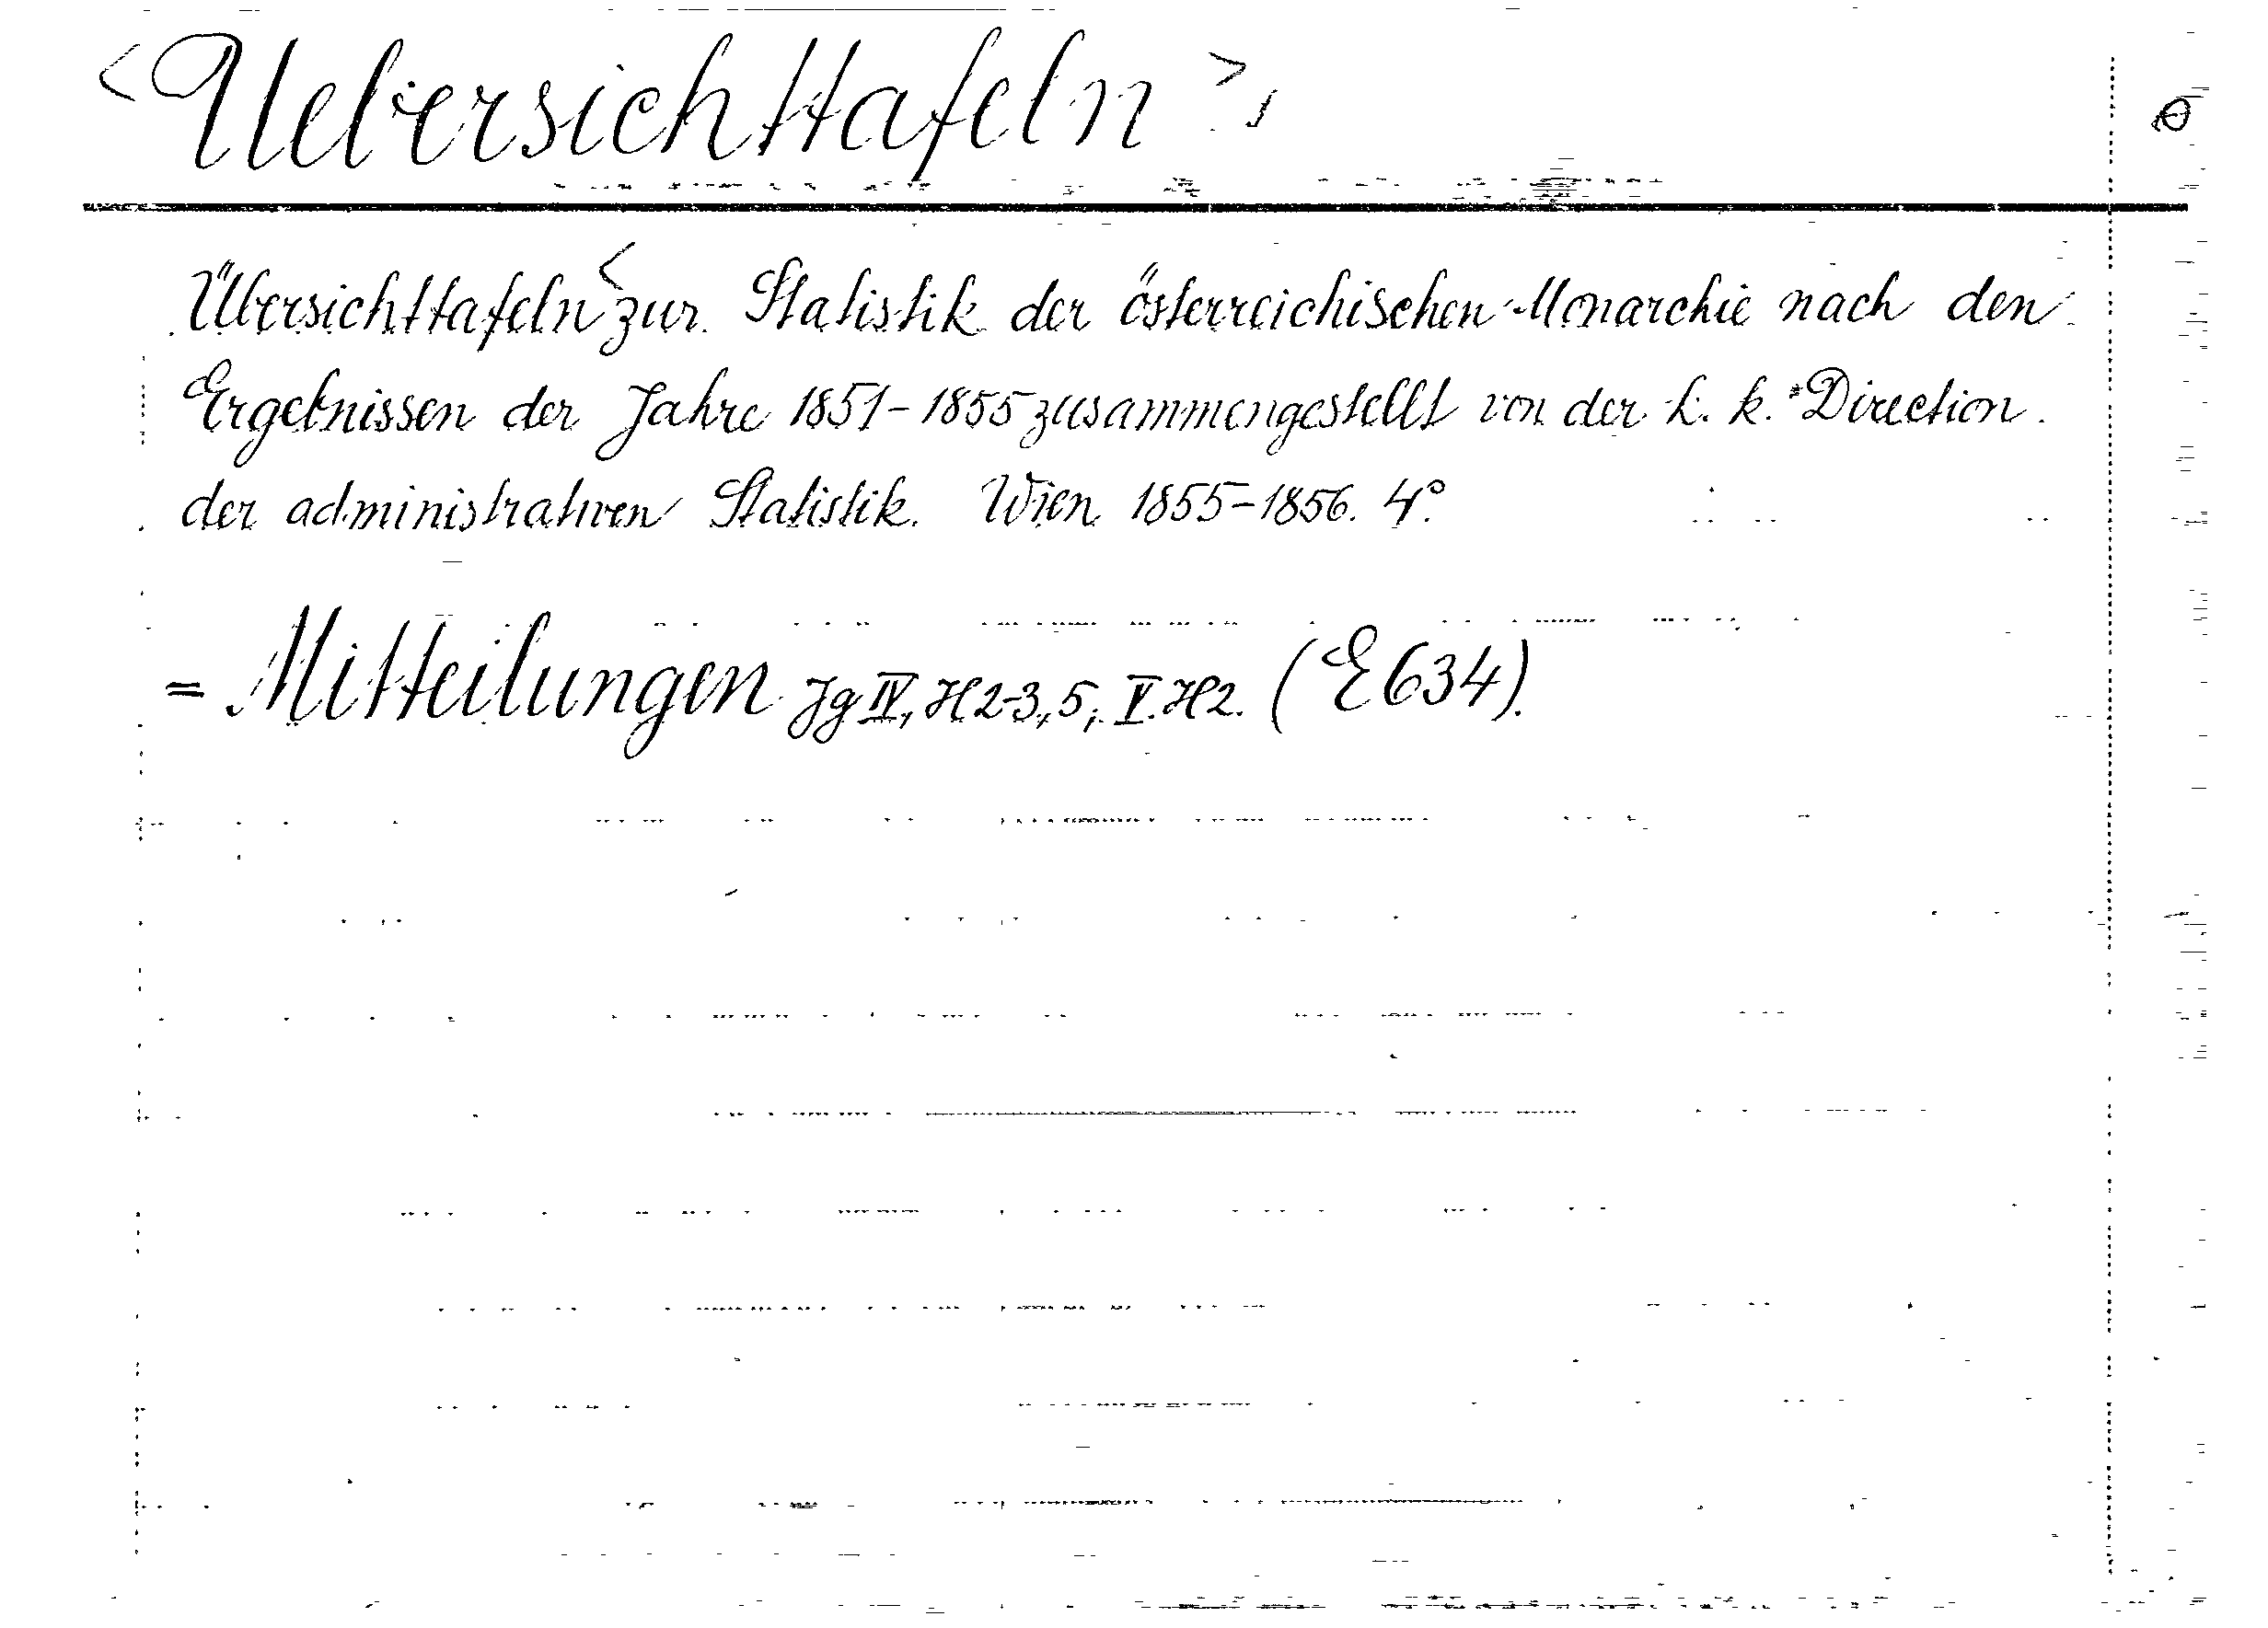 <Uebersichttafeln>,
Übersichttafeln < zur Statistik der österreichischen Monarchie nach den
Ergebnissen der Jahre 1851-1855 zusammengestellt von der k. k. Direction
der administrativen Statistik. Wien 1855-1856. 4°.
= Mitteilungen Jg IV, H 2-3, 5; V. H 2. (E 634).